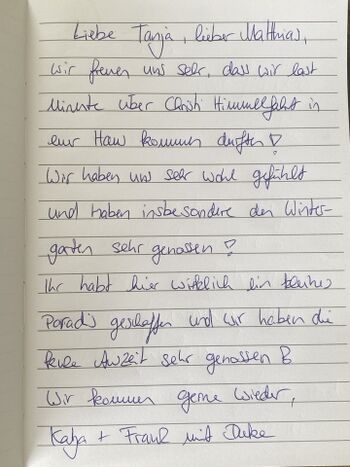 Liebe Tanja, lieber Matthias,
wir freuen uns sehr, dass wir last
Minute über Christi Himmelfahrt in
euer Haus kommen durften!
Wir haben uns sehr wohl gefühlt
und haben insbesondere den Winter-
garten sehr genossen!
Ihr habt hier wirklich ein kleines
Paradis geschaffen und wir haben die
Auszeit sehr genossen
Wir kommen gerne wieder,
Katja + Frank mit